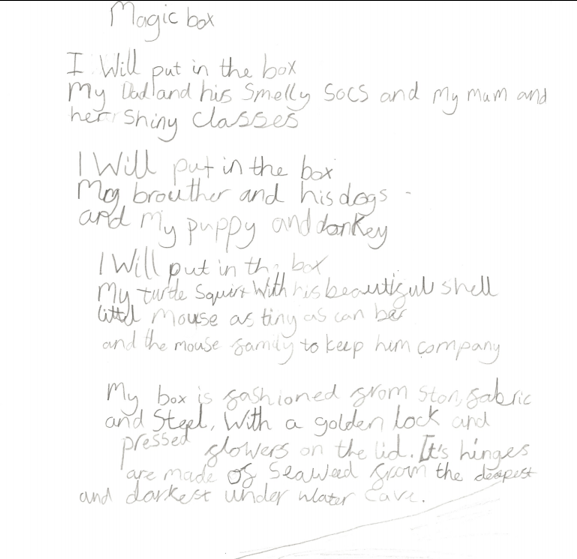 Magic box
I Will put in the box
My Dad and his Smelly Socs and my mum and
her shiny Classes
I Will put in the box
My brouther and his dogs
and My puppy and donkey
I Will put in the box
My turtle Squirt With his beautiful shell
little mouse as tiny as can be
and the mouse family to keep him company
My box is fashioned from Ston, fabric
and Steel, With a golden lock and
pressed flowers on the lid. It's hinges
are made of Seaweed from the deepest
and darkest under water Cave.